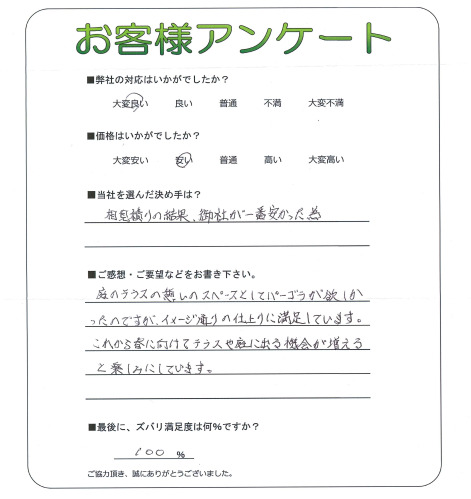 お客様アンケート
■弊社の対応はいかがでしたか？
大変良い　良い　普通　不満　大変不満
■価格はいかがでしたか？
大変安い　安い　普通　高い　大変高い
■当社を選んだ決め手は？
相見積りの結果、御社が一番安かった為
■ご感想・ご要望などをお書き下さい。
庭のテラスの癒しのスペースとしてパーゴラが欲しか
ったのですが、イメージ通りの仕上りに満足しています。
これから春に向けてテラスや庭に出る機会が増える
と楽しみにしています。
■最後に、ズバリ満足度は何％ですか？
100 ％
ご協力頂き、誠にありがとうございました。